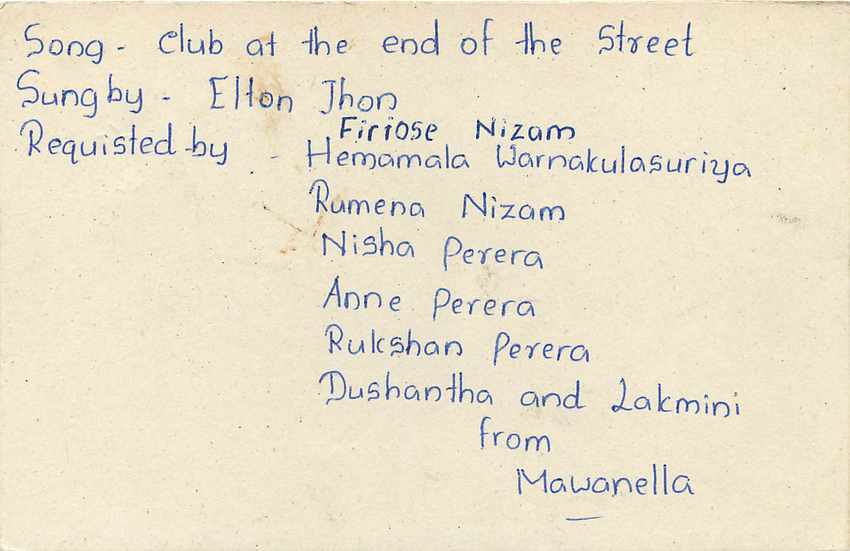 Song - Club at the end of the Street
Sung by - Elton Jhon
Requisted by - Firiose Nizam
Hemamala Warnakulasuriya
Rumena Nizam
Nisha Perera
Anne Perera
Rukshan Perera
Dushantha and Lakmini
from
Mawanella